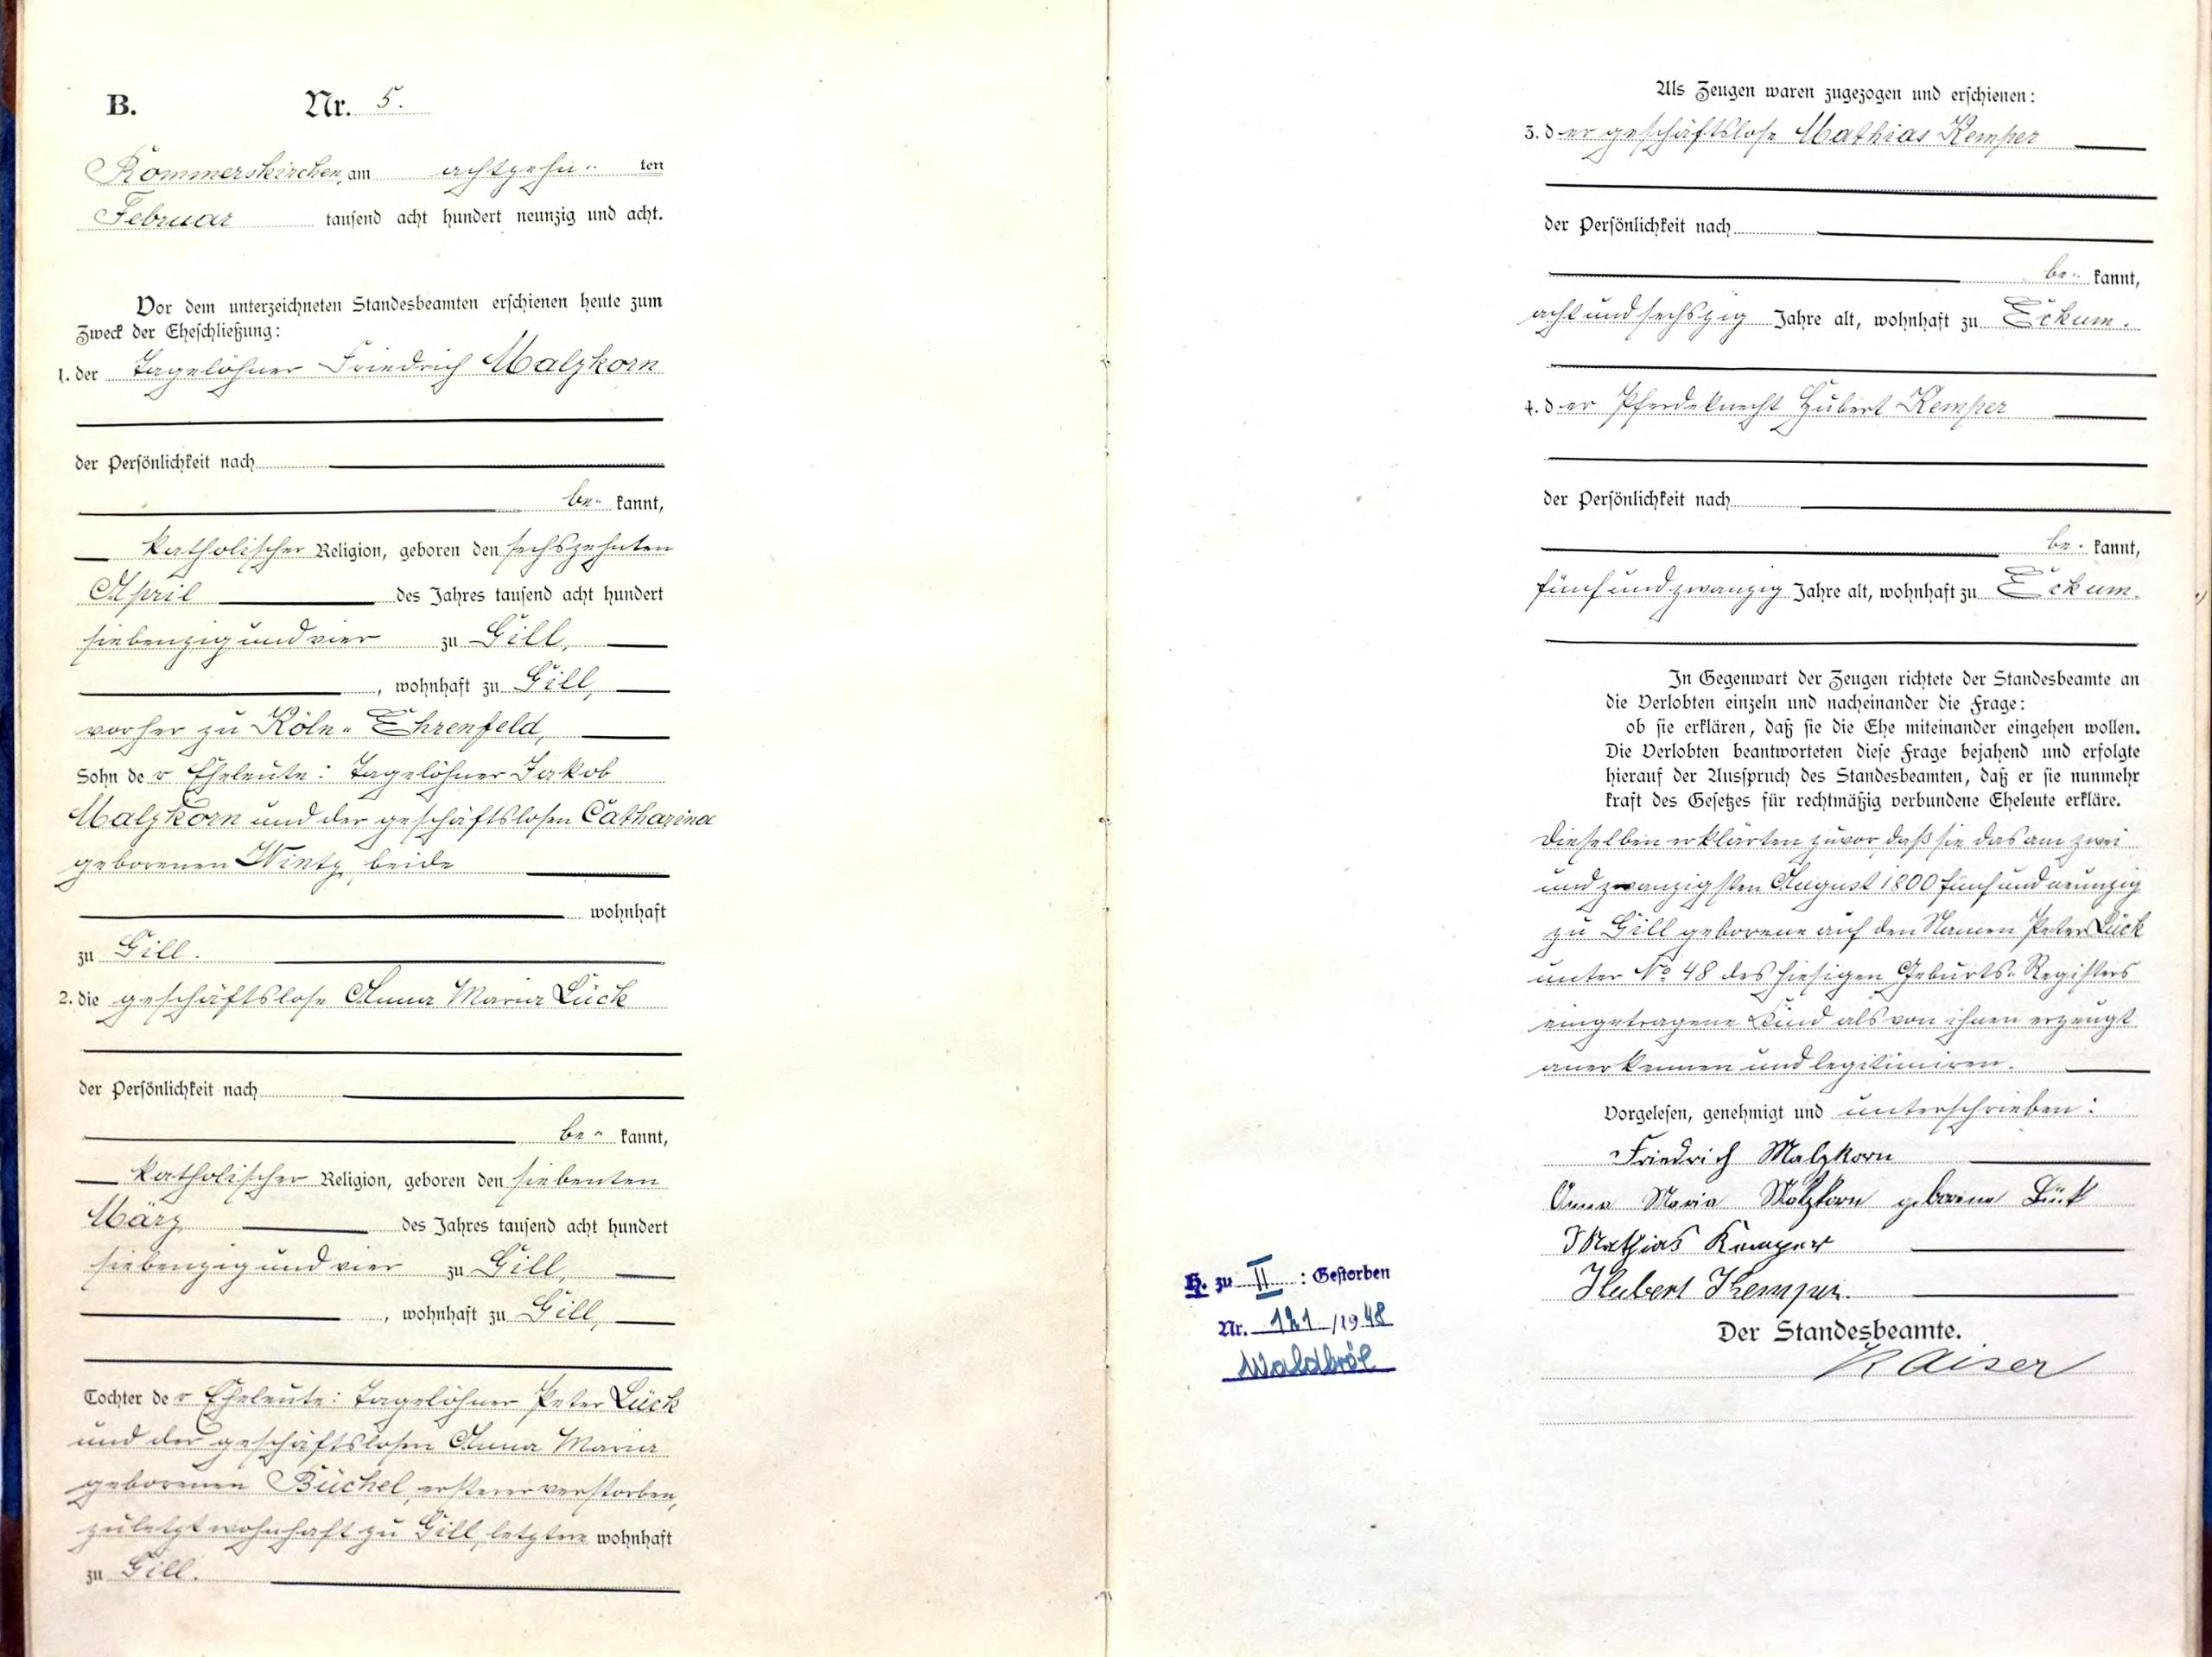 B. Nr. 5.
Rommerskirchen, am achtzehn- ten
Februar tausend acht hundert neunzig und acht.
Vor dem unterzeichneten Standesbeamten erschienen heute zum
Zweck der Eheschließung:
1. der Tagelöhner Friedrich Malzkorn
der Persönlichkeit nach
be- kannt,
katholischer Religion, geboren den sechszehnten
April des Jahres tausend acht hundert
siebenzig und vier zu Gill,
, wohnhaft zu Gill,
vorher zu Köln-Ehrenfeld,
Sohn der Eheleute: Tagelöhner Jakob
Malzkorn und der geschäftslosen Catharina
geborenen Wintz, beide
wohnhaft
zu Gill.
2. die geschäftslose Anna Maria Lück
der Persönlichkeit nach
be- kannt,
katholischer Religion, geboren den siebenten
März des Jahres tausend acht hundert
siebenzig und vier zu Gill,
, wohnhaft zu Gill,
Tochter der Eheleute: Tagelöhner Peter Lück
und der geschäftslosen Anna Maria
geborenen Büchel, ersterer verstorben,
zuletzt wohnhaft zu Gill, letztere wohnhaft
zu Gill.
Als Zeugen waren zugezogen und erschienen:
3. der geschäftslose Mathias Kemper
der Persönlichkeit nach
be- kannt,
acht und sechszig Jahre alt, wohnhaft zu Eckum.
4. der Pferdeknecht Hubert Kemper
der Persönlichkeit nach
be- kannt,
fünf und zwanzig Jahre alt, wohnhaft zu Eckum.
In Gegenwart der Zeugen richtete der Standesbeamte an
die Verlobten einzeln und nacheinander die Frage:
ob sie erklären, daß sie die Ehe miteinander eingehen wollen.
Die Verlobten beantworteten diese Frage bejahend und erfolgte
hierauf der Ausspruch des Standesbeamten, daß er sie nunmehr
kraft des Gesetzes für rechtmäßig verbundene Eheleute erkläre.
Dieselben erklärten zuvor, daß sie das am zwei
und zwanzigsten August 1800 fünf und neunzig
zu Gill geborene auf den Namen Peter Lück
unter No 48 des hiesigen Geburts-Registers
eingetragene Kind als von ihnen erzeugt
anerkennen und legitimiren.
Vorgelesen, genehmigt und unterschrieben:
Friedrich Malzkorn
Anna Maria Malzkorn geborene Lück
Mathias Kemper
Hubert Kemper.
Der Standesbeamte.
Kaiser
H. zu II : Gestorben
Nr. 121 /1948
Waldbröl